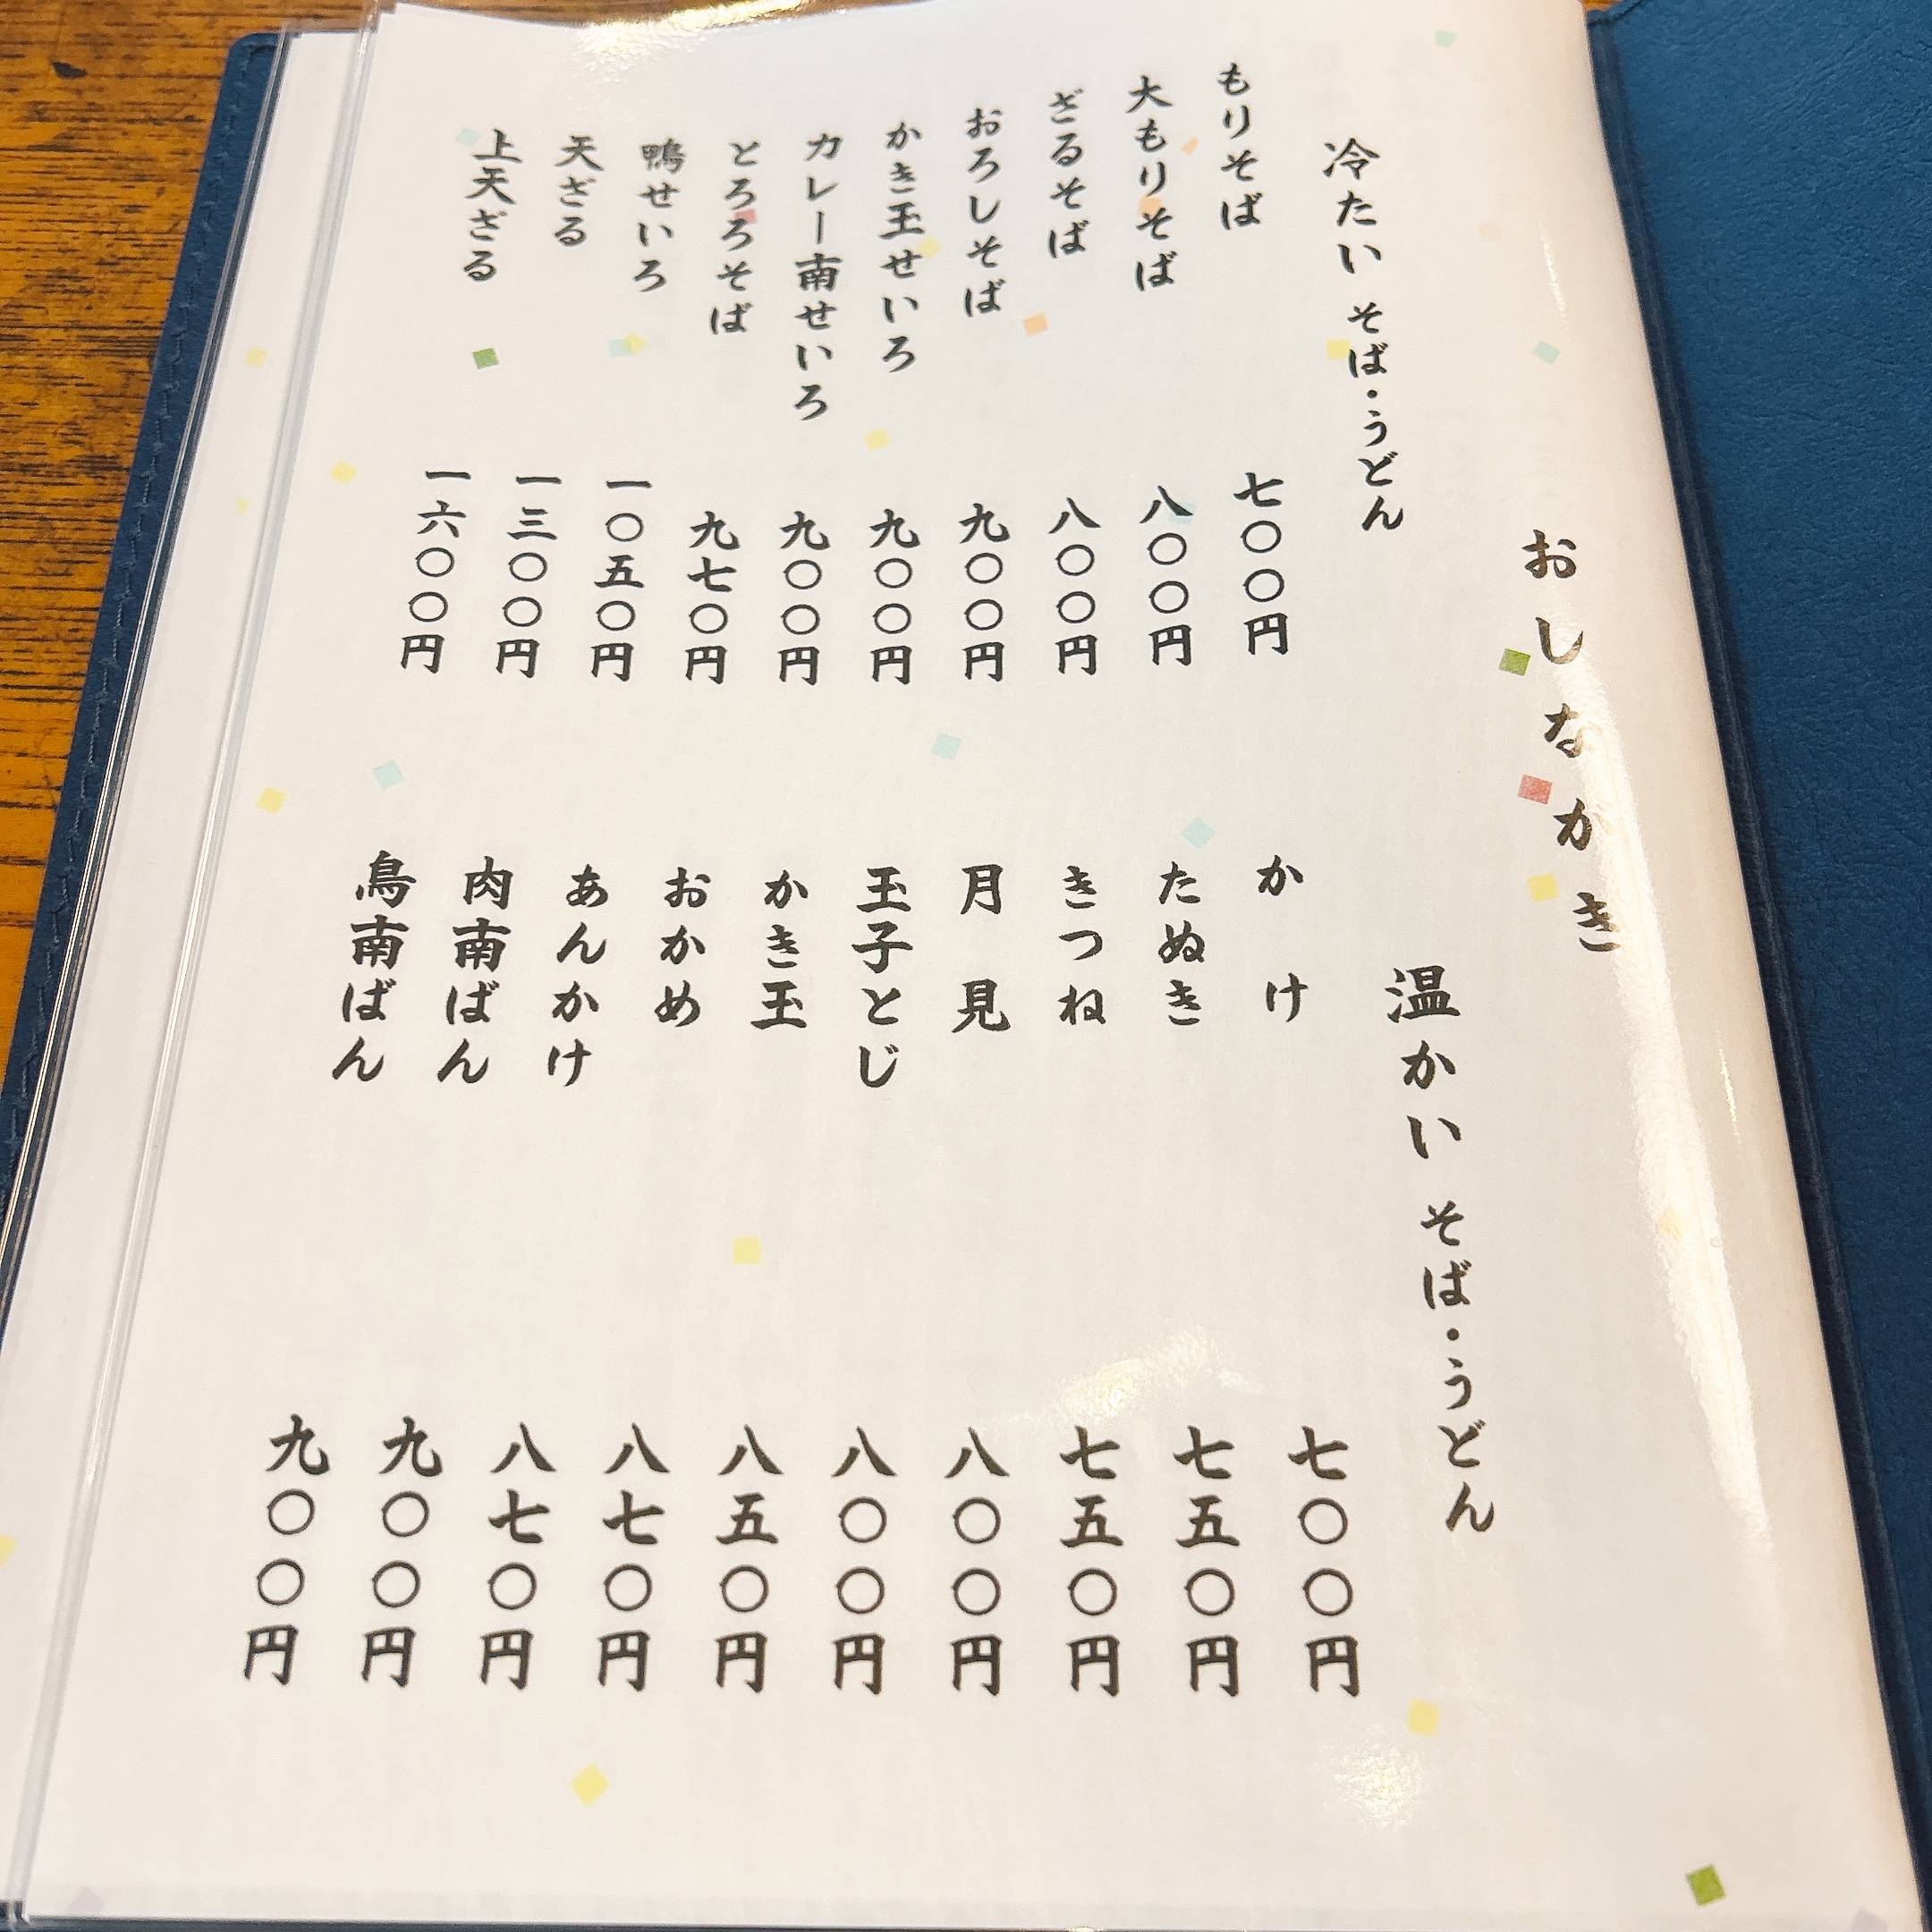 おしながき
冷たい そば・うどん
もりそば 七〇〇円
大もりそば 八〇〇円
ざるそば 八〇〇円
おろしそば 九〇〇円
かき玉せいろ 九〇〇円
カレー南せいろ 九〇〇円
とろろそば 九七〇円
鴨せいろ 一〇五〇円
天ざる 一三〇〇円
上天ざる 一六〇〇円
温かい そば・うどん
かけ 七〇〇円
たぬき 七五〇円
きつね 七五〇円
月見 八〇〇円
玉子とじ 八〇〇円
かき玉 八五〇円
おかめ 八七〇円
あんかけ 八七〇円
肉南ばん 九〇〇円
鳥南ばん 九〇〇円